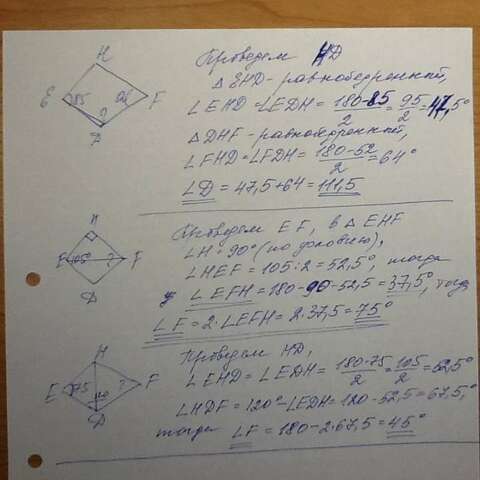 H
E
85
52
F
?
D
Проведем HD
△EHD - равнобедренный,
∠EHD=∠EDH = 180-85/2 = 95/2 = 47,5°
△DHF - равнобедренный,
∠FHD=∠FDH = 180-52/2 = 64°
∠D = 47,5+64 = 111,5
H
E
105
?
F
D
Проведем EF, в △EHF
∠H=90° (по условию),
∠HEF = 105:2 = 52,5°, тогда
∠EFH = 180-90-52,5 = 37,5°, тогда
∠F = 2·∠EFH = 2·37,5 = 75°
H
E
75
?
F
120
D
Проведем HD,
∠EHD = ∠EDH = 180-75/2 = 105/2 = 52,5°
∠HDF = 120°-∠EDH = 120-52,5 = 67,5°,
тогда ∠F = 180-2·67,5 = 45°